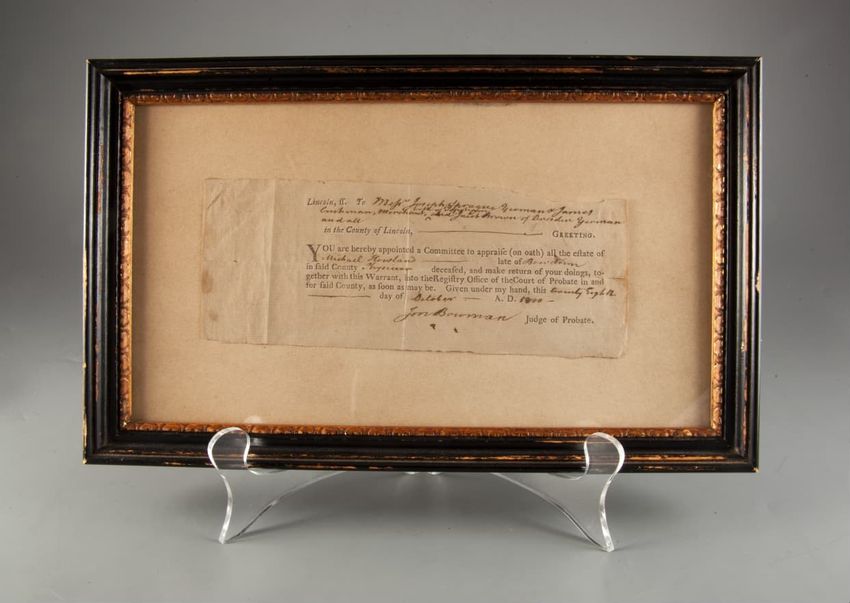 Lincoln, ſſ. To Messrs Joseph Sprague Yeoman & James
Cushman, Merchant, and Jacob Brown of Dresden Yeoman
and all
in the County of Lincoln, GREETING.
YOU are hereby appointed a Committee to appraiſe (on oath) all the eſtate of
Michael Howland late of Bowdoin
in ſaid County Physician deceaſed, and make return of your doings, to-
gether with this Warrant, into the Regiſtry Office of the Court of Probate in and
for ſaid County, as ſoon as may be. Given under my hand, this twenty Eighth
day of October A. D. 1800
Jon Bowman Judge of Probate.